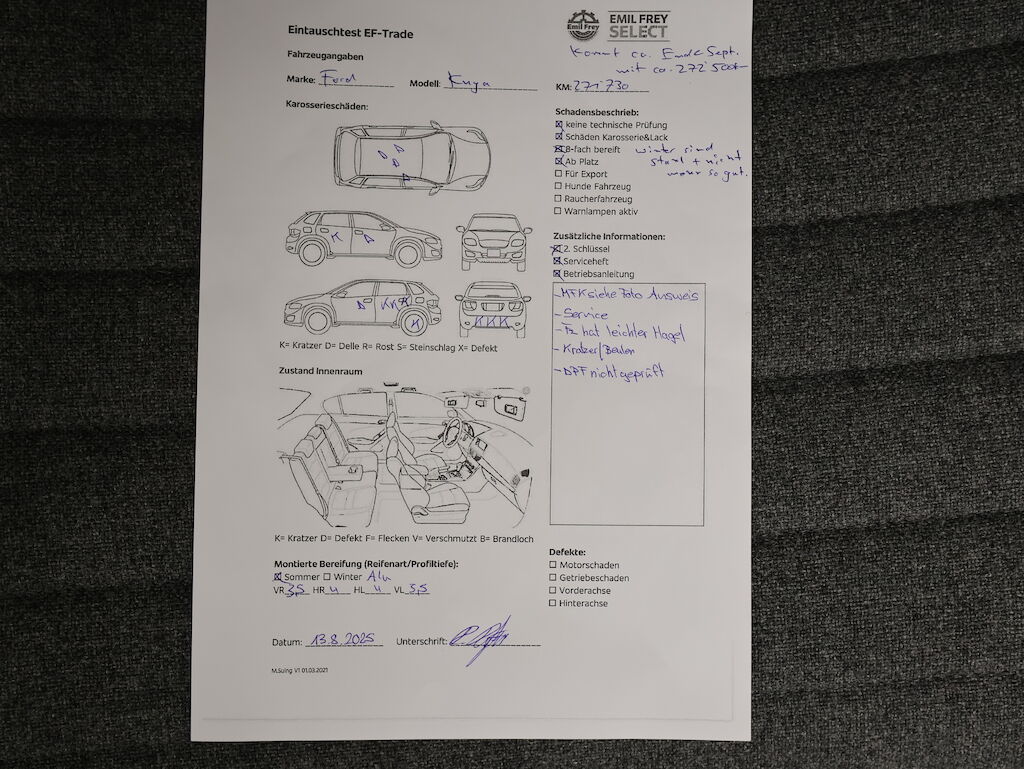 Eintauschtest EF-Trade
Emil Frey
EMIL FREY
SELECT
Kommt ca. Ende Sept.
mit ca. 272'500.-
Fahrzeugangaben
Marke: Ford Modell: Kuga KM: 271'730
Karosserieschäden:
K
D
D
K K K
K
K K K
K= Kratzer D= Delle R= Rost S= Steinschlag X= Defekt
Zustand Innenraum
K= Kratzer D= Defekt F= Flecken V= Verschmutzt B= Brandloch
Montierte Bereifung (Reifenart/Profiltiefe):
☒ Sommer ☐ Winter Alu
VR 3,5 HR 4 HL 4 VL 3,5
Datum: 13.8.2025 Unterschrift:
M.Suing V1 01.03.2021
Schadensbeschrieb:
☒ keine technische Prüfung
☒ Schäden Karosserie&Lack
☒ 8-fach bereift winter sind
☒ Ab Platz + nicht
☐ Für Export so gut.
☐ Hunde Fahrzeug
☐ Raucherfahrzeug
☐ Warnlampen aktiv
Zusätzliche Informationen:
☒ 2. Schlüssel
☒ Serviceheft
☒ Betriebsanleitung
- MFK siehe Foto Ausweis
- Service
- Fz hat leichter Hagel
- Kratzer/Beulen
- DPF nicht geprüft
Defekte:
☐ Motorschaden
☐ Getriebeschaden
☐ Vorderachse
☐ Hinterachse